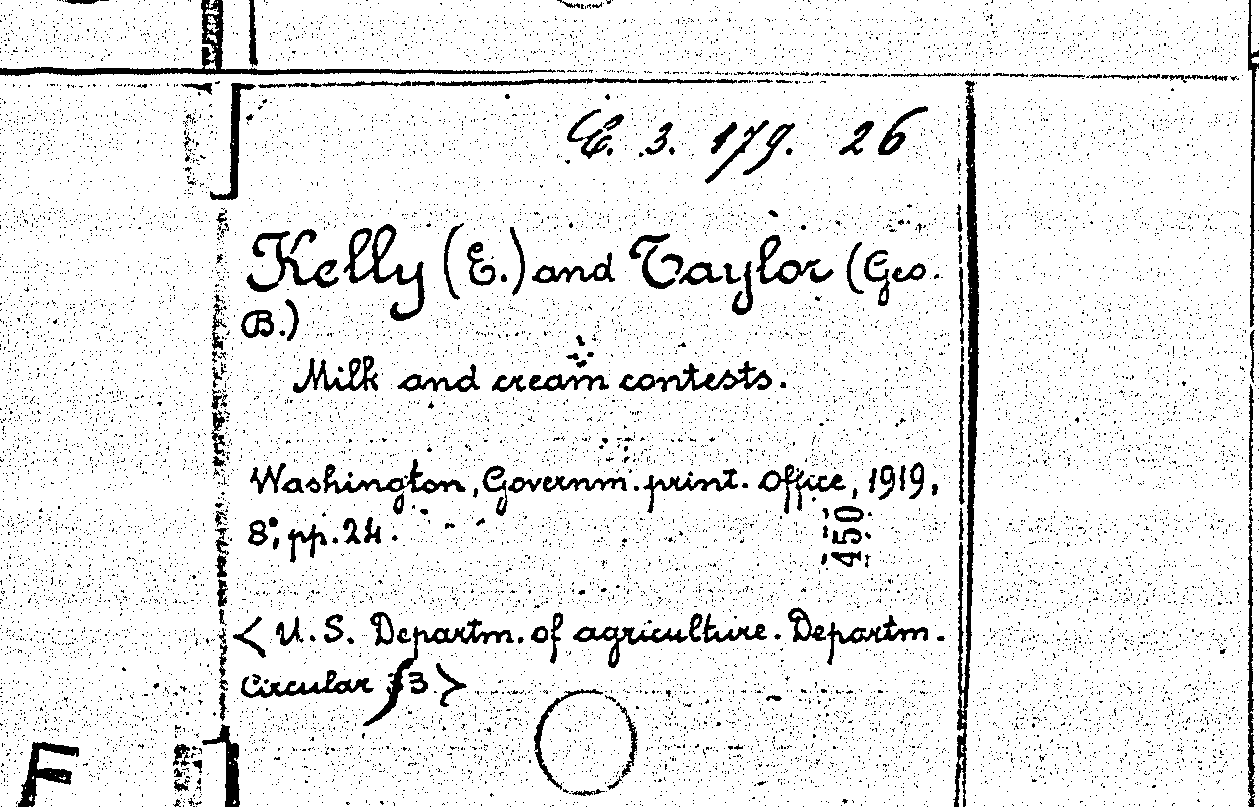 E. 3. 179. 26
Kelly (E.) and Taylor (Geo.
B.)
Milk and cream contests.
Washington, Governm. print. Office, 1919,
8°, pp. 24.
450
< U.S. Departm. of agriculture. Departm.
Circular 53 >
F